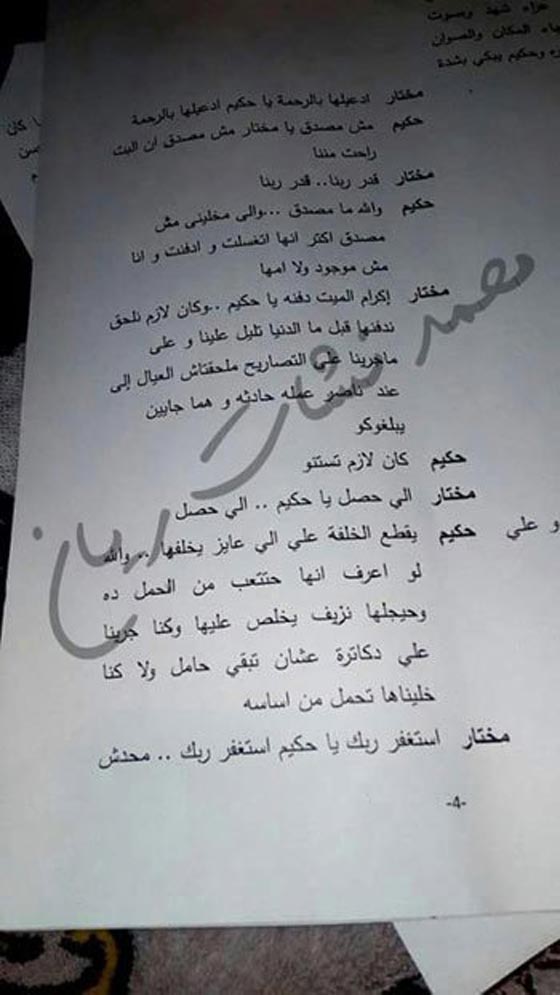 عزاء شهد وبصوت
المكان والصوان
وحكيم يبكي بشدة
مختار ادعيلها بالرحمة يا حكيم ادعيلها بالرحمة
حكيم مش مصدق يا مختار مش مصدق ان البت
راحت مننا
مختار قدر ربنا.. قدر ربنا
حكيم والله ما مصدق ...والى مخليني مش
مصدق اكتر انها اتغسلت و ادفنت و انا
مش موجود ولا امها
مختار إكرام الميت دفنه يا حكيم ..وكان لازم نلحق
ندفنها قبل ما الدنيا تليل علينا و على
ماجرينا على التصاريح ملحقتاش العيال إلى
عند ناصر عمله حادثه و هما جايين
يبلغوكو
حكيم كان لازم تستنو
مختار الي حصل يا حكيم .. الي حصل
حكيم يقطع الخلفة علي الي عايز يخلفها .. والله
لو اعرف انها حتتعب من الحمل ده
وحيجلها نزيف يخلص عليها وكنا جرينا
علي دكاترة عشان تبقي حامل ولا كنا
خليناها تحمل من اساسه
مختار استغفر ربك يا حكيم استغفر ربك .. محدش
-4-
كان
و علي
محمد نشات ريان